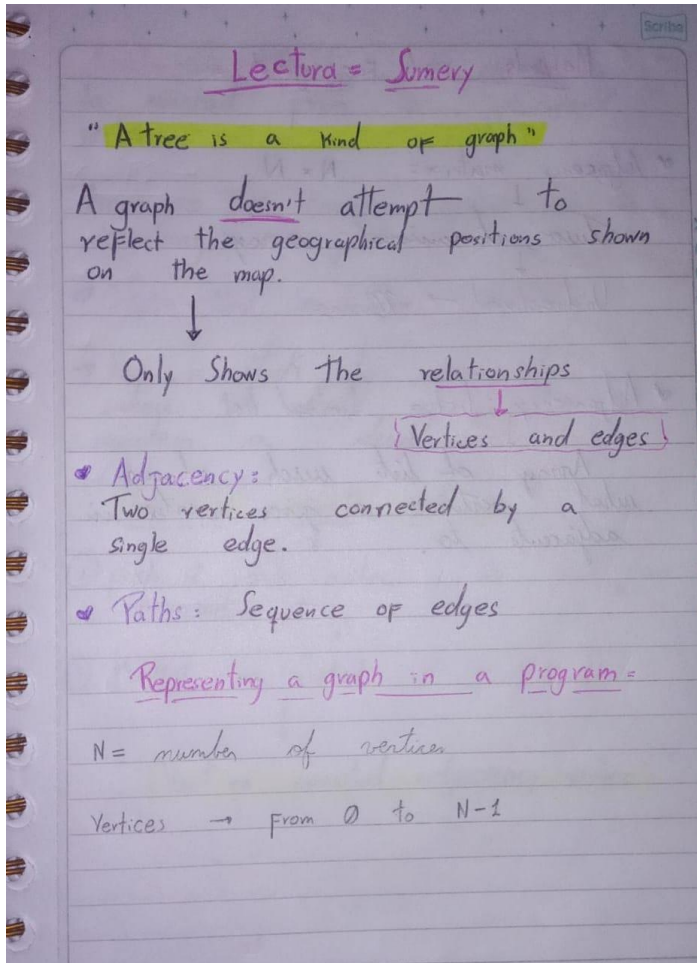 Scribe
Lectura = Sumery
"A tree is a kind of graph"
A graph doesn't attempt to
reflect the geographical positions shown
on the map.
Only Shows the relationships
Vertices and edges
Adjacency:
Two vertices connected by a
single edge.
Paths: Sequence of edges
Representing a graph in a program =
N = number of vertices
Vertices → From 0 to N-1